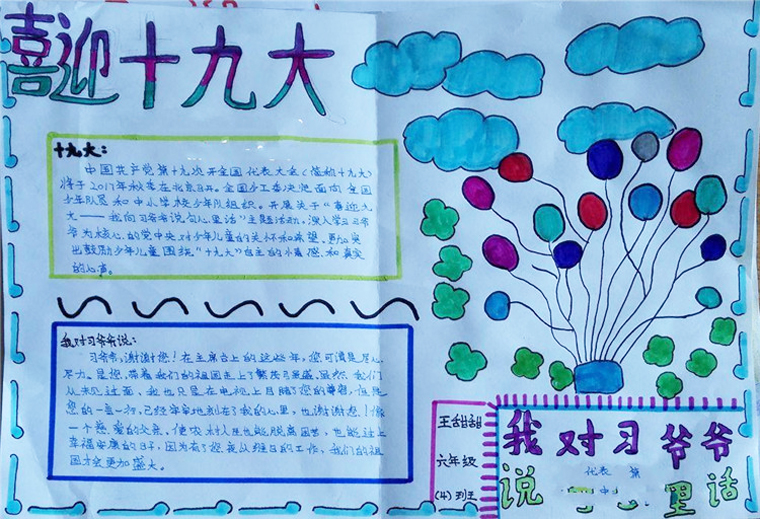 喜迎十九大
十九大：
中国共产党第十九次开全国代表大会（简称十九大）
将于2017年秋季在北京召开。全国少工委决定面向全国
少年队员和中小学校少年队组织。开展关于“喜迎九
大——我向习爷爷说句心里话”主题活动。深入学习习爷
爷为核心的党中央对少年儿童的关怀和希望。更加突
出鼓励少年儿童围绕“十九大”自主的小梦想和真实
的心声。
我对习爷爷说：
习爷爷，谢谢您！在主席台上的这些年，您可谓是尽心
尽力。是您，带着我们的祖国走上了繁荣昌盛。虽然我们
从未见过面，我也只是在电视上目睹了您的尊容，但是
您的一言一行，已经牢牢地刻在了我的心里，也谢谢您！像
一个慈爱的父亲，使农村人民也能脱离困苦，也能过上
幸福安康的日子，因为有了您夜以继日的工作，我们的祖
国才会更加盛大。
王甜甜
六年级
（4）班
我对习爷爷
代表 第
说 里话
中